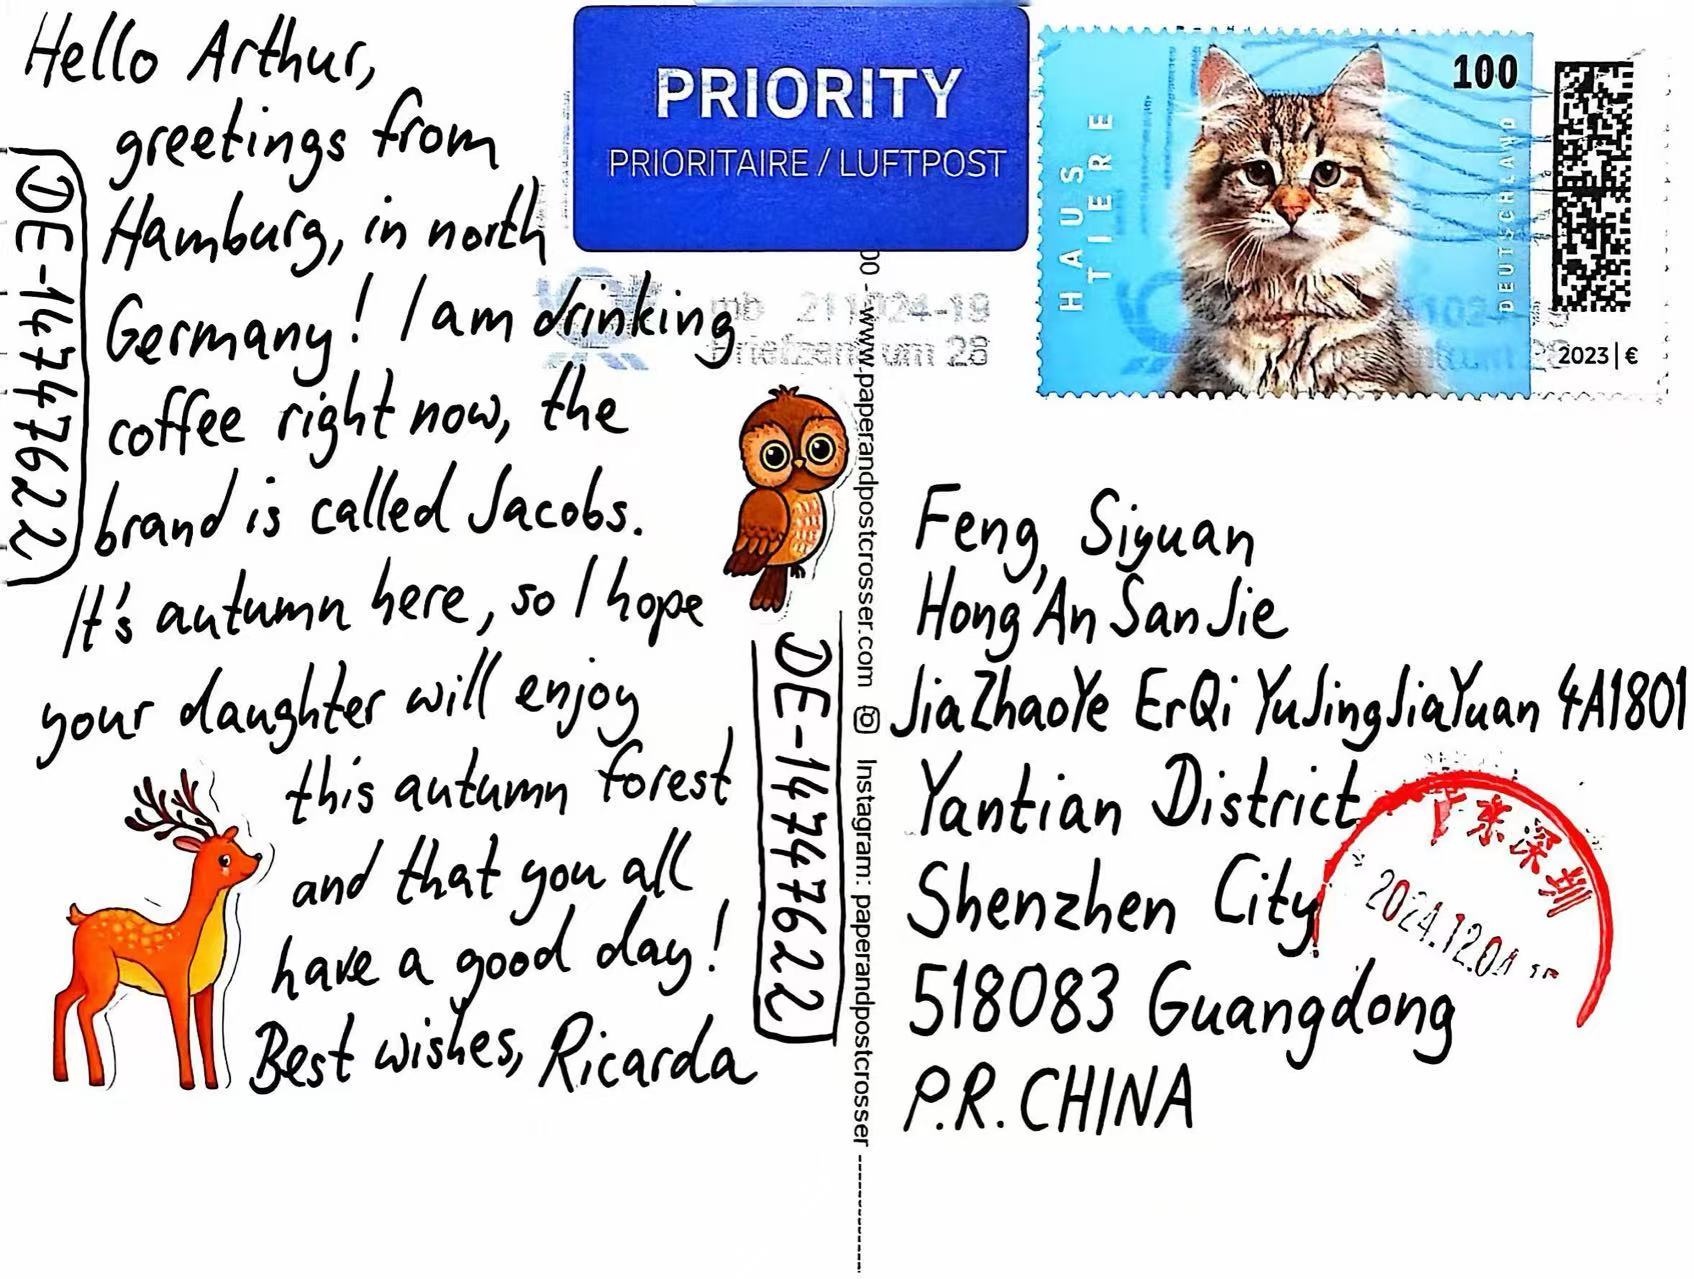 Hello Arthur,
greetings from
Hamburg, in north
Germany! I am drinking
coffee right now, the
brand is called Jacobs.
It's autumn here, so I hope
your daughter will enjoy
this autumn forest
and that you all
have a good day!
Best wishes, Ricarda
DE-14747622
DE-14747622
PRIORITY
PRIORITAIRE / LUFTPOST
211024-19
Briefzentrum 28
www.paperandpostcrosser.com Instagram: paperandpostcrosser
HAUS
TIERE
100
DEUTSCHLAND
2023 | €
Feng, Siyuan
Hong An San Jie
JiaZhaoYe ErQi YuJingJiaYuan 4A1801
Yantian District
Shenzhen City
518083 Guangdong
P.R. CHINA
广东深圳
2024.12.04